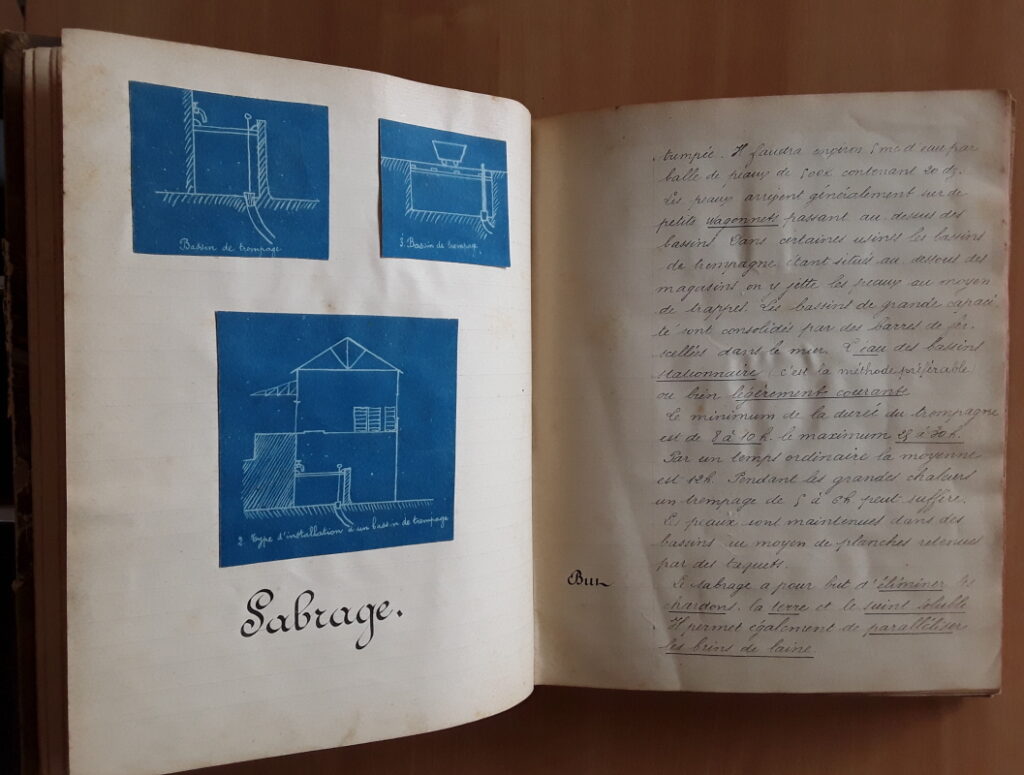 Bassin de trempage
3. Bassin de trempage
2. Type d'installation d'un bassin de trempage
Sabrage.
trempée. Il faudra environ 5 mc d'eau par
balle de peaux de 500k contenant 20 dz.
Les peaux arrivent généralement sur de
petits wagonnets passant au dessus des
bassins. Dans certaines usines les bassins
de trempagne étant situés au dessous des
magasins on y jette les peaux au moyen
de trappes. Les bassins de grande capaci
té sont consolidés par des barres de fer
scellées dans le mur. L'eau des bassins
stationnaire (c'est la méthode préférable
ou bien légèrement courante
Le minimum de la durée du trempagne
est de 8 à 10 h. le maximum 25 à 30 h.
Par un temps ordinaire la moyenne
est 12h. Pendant les grandes chaleurs
un trempage de 5 à 6h peut suffire.
Les peaux sont maintenues dans des
bassins au moyen de planches retenues
par des taquets.
But
Le sabrage a pour but d'éliminer les
chardons, la terre et le suint soluble
Il permet également de paralléliser
les brins de laine.